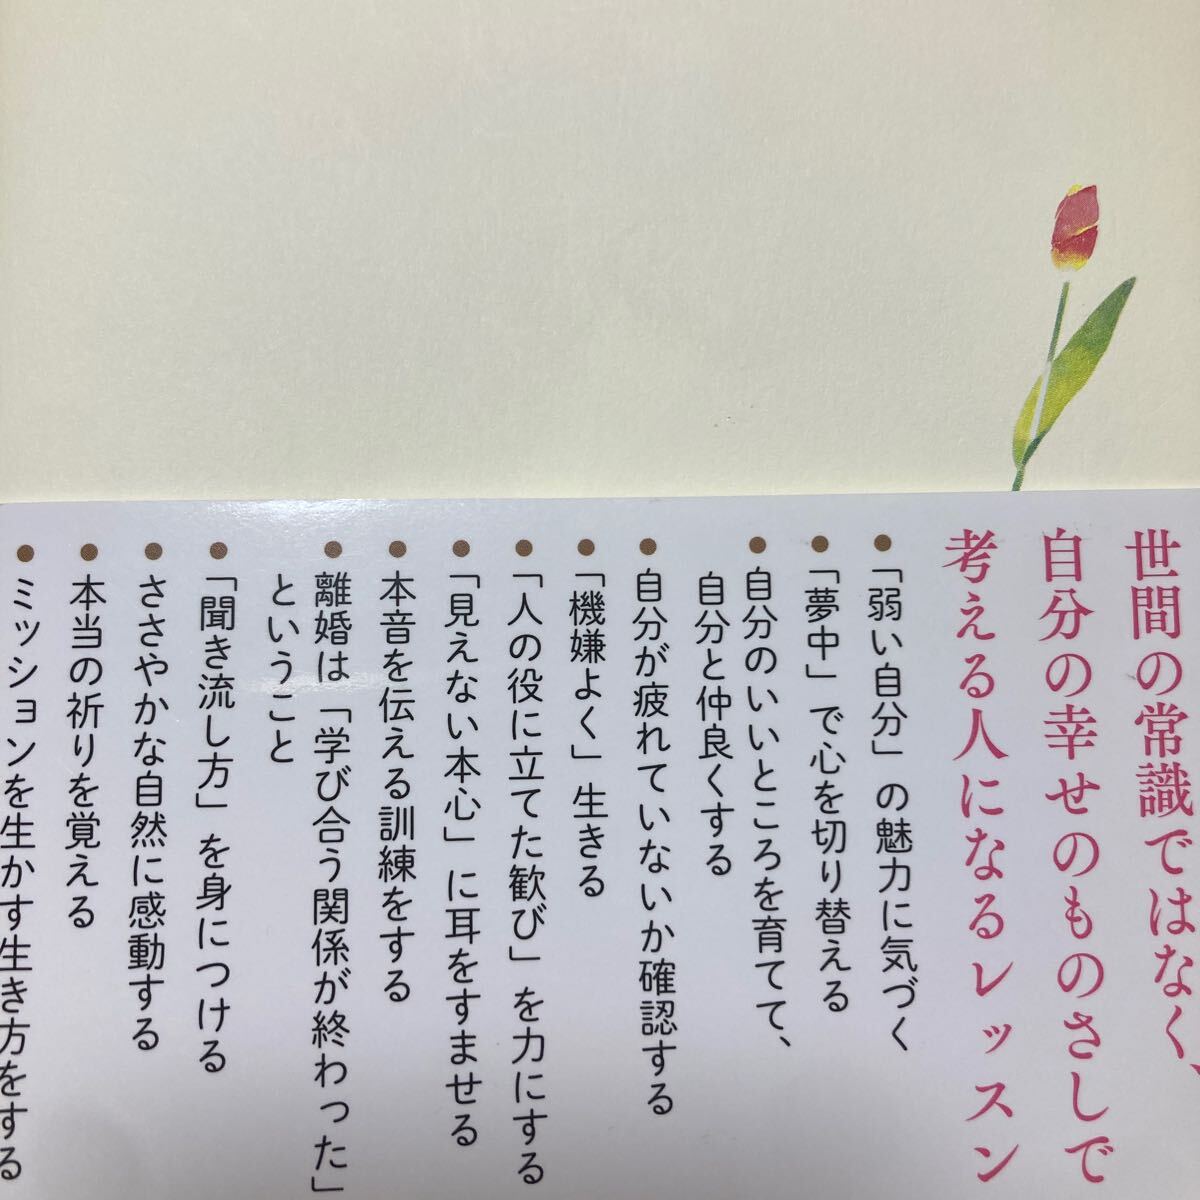 世間の常識ではなく、
自分の幸せのものさしで
考える人になるレッスン
●「弱い自分」の魅力に気づく
●「夢中」で心を切り替える
●自分のいいところを育てて、
自分と仲良くする
●自分が疲れていないか確認する
●「機嫌よく」生きる
●「人の役に立てた歓び」を力にする
●「見えない本心」に耳をすませる
●本音を伝える訓練をする
●離婚は「学び合う関係が終わった」
ということ
●「聞き流し方」を身につける
●ささやかな自然に感動する
●本当の祈りを覚える
●ミッションを生かす生き方をする